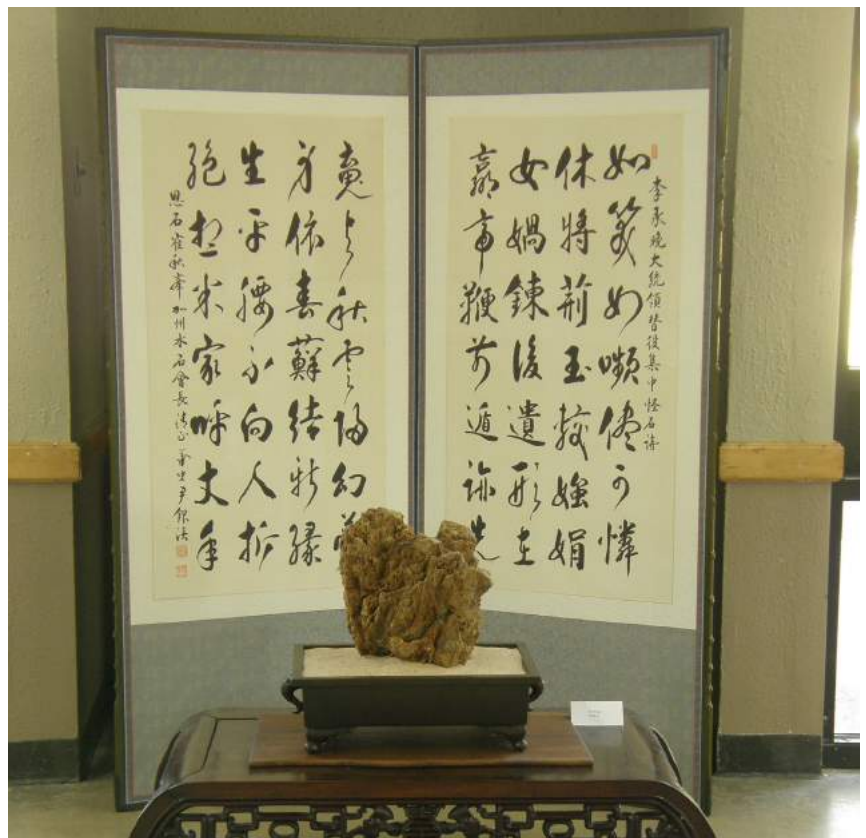 李承晩大統領替役集中怪石詩
如笑如嚬儘可憐
休將荊玉較嬋娟
女媧鍊後遺形在
嬴帝鞭前遁跡先
魂與秋雲歸幻
身依春蘚結新緣
生平腰不向人折
絶想米家呼丈年
思石崔秋峯加州水石會長清正